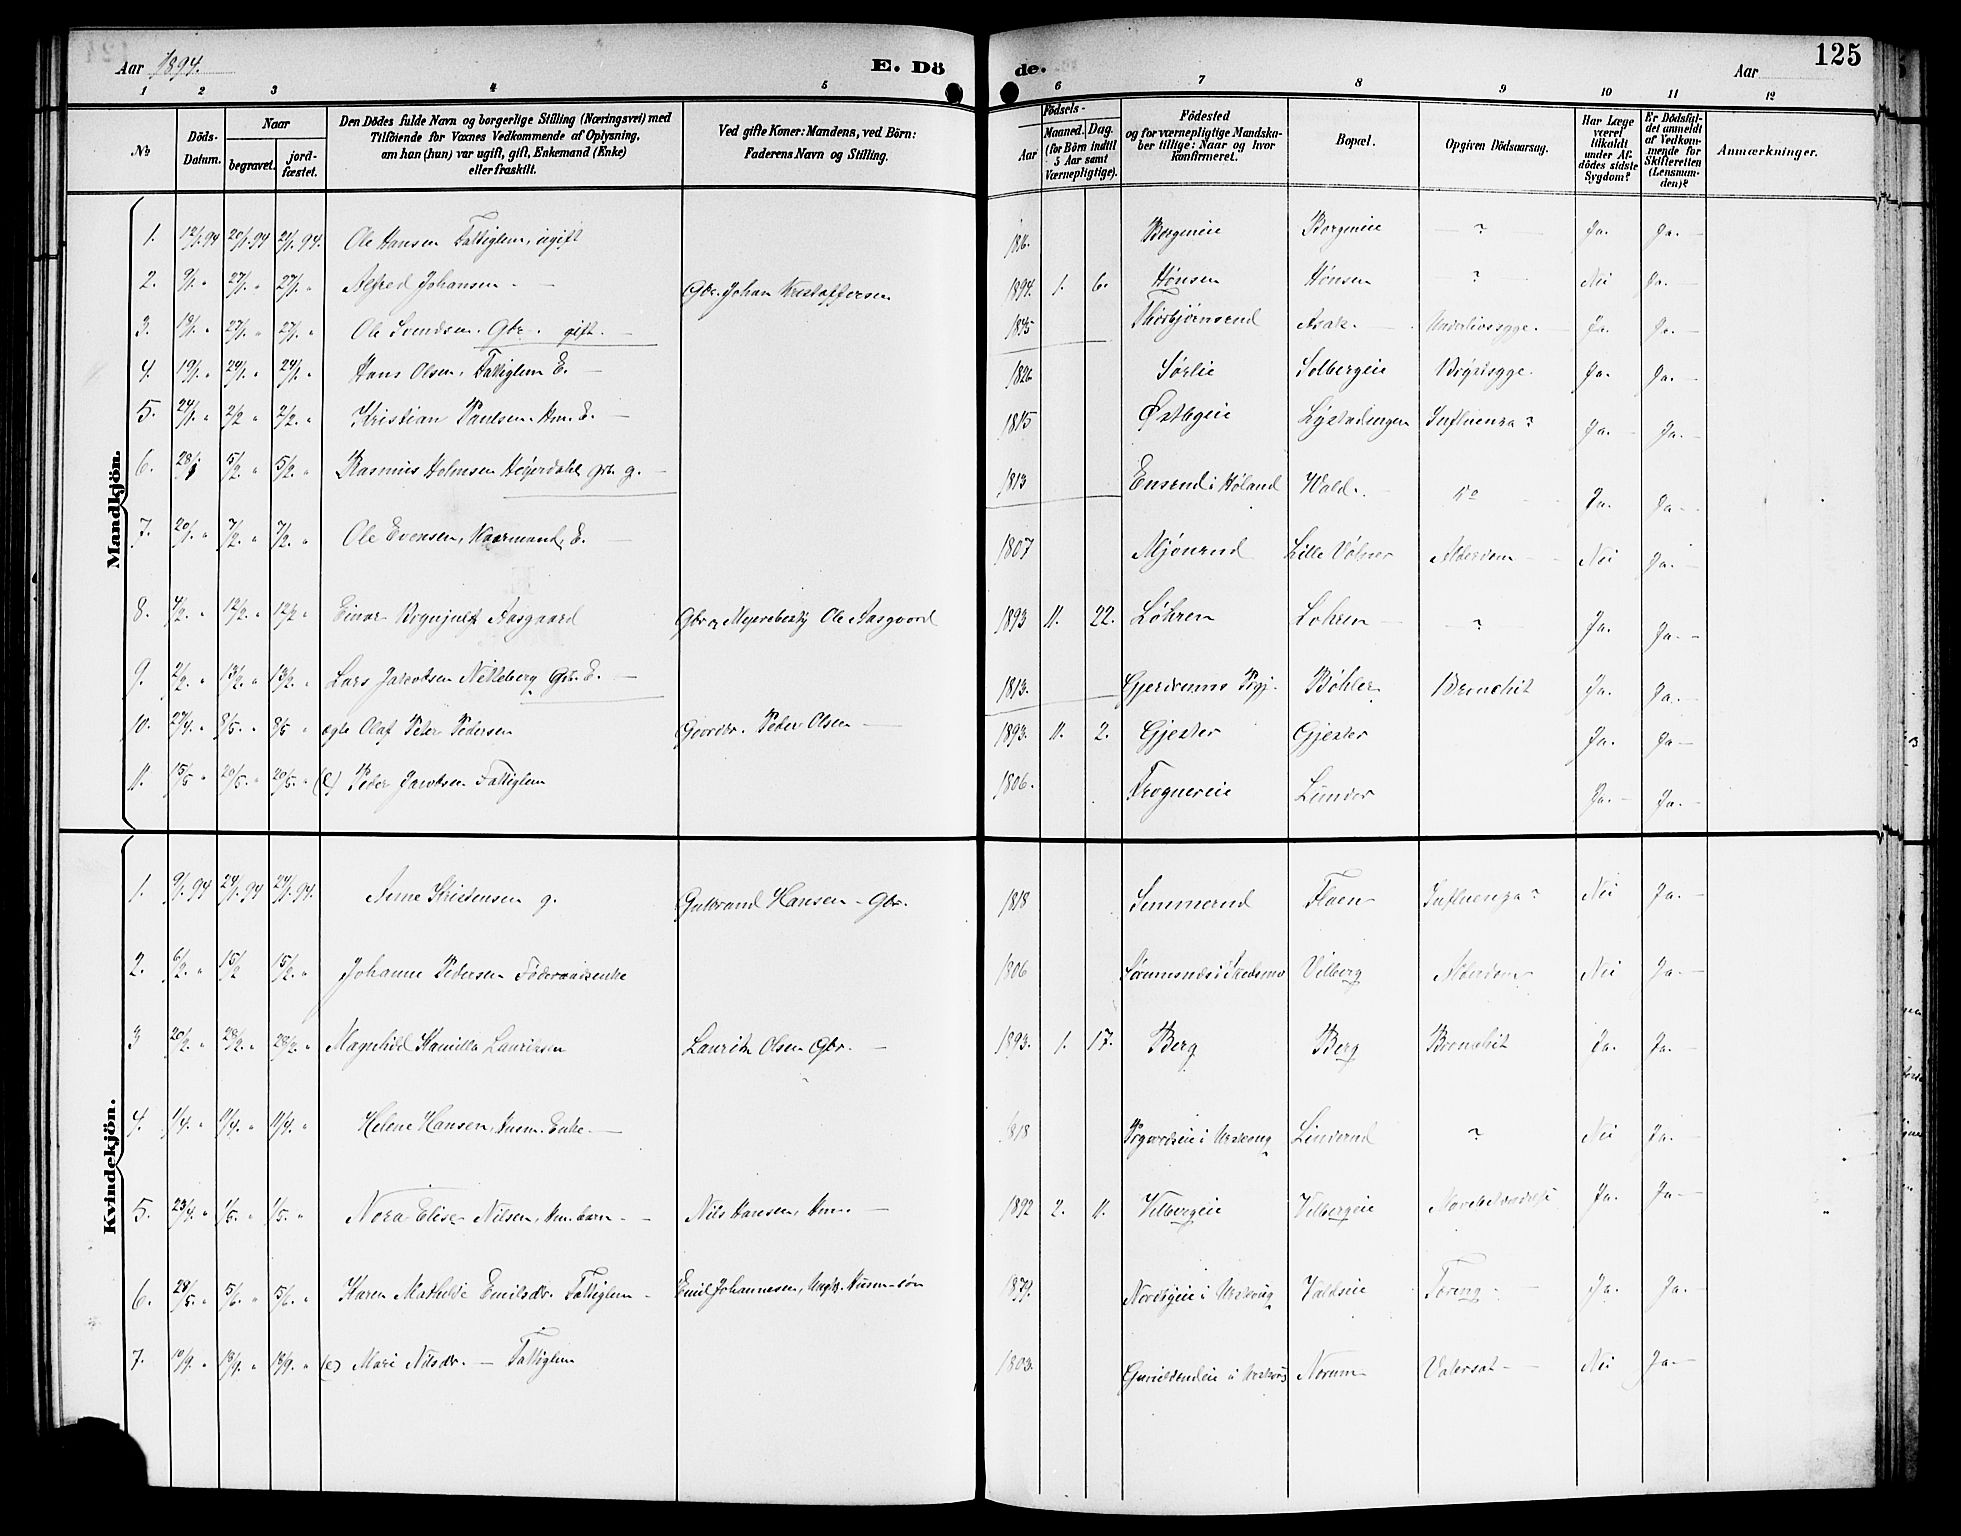 125
Aar 1894.
E. Dö
de.
Aar
1 2 3 4 5 6 7 8 9 10 11 12
No
Döds-Datum.
Naar
begravet.
jord-fæstet.
Den Dödes fulde Navn og borgerlige Stilling (Næringsvei) med
Tilföiende for Voxnes Vedkommende af Oplysning,
om han (hun) var ugift, gift, Enkemand (Enke)
eller fraskilt.
Ved gifte Koner: Mandens, ved Börn:
Faderens Navn og Stilling.
Födsels-
Aar
Maaned. Dag.
(for Börn indtil
5 Aar samt
Værnepligtige).
Födested
og for værnepligtige Mandska-
ber tillige: Naar og hvor
konfirmeret.
Bopæl.
Opgiven Dödsaarsag.
Har Læge
været
tilkaldt
under Af-
dödes sidste
Sygdom?
Er Dödsfal-
det anmeldt
af Vedkom-
mende for
Skifteretten
(Lensman-
den)?
Anmærkninger.
Mandkjön.
1. 12/1.94 20/1.94 21/1.94. Ole Hansen Fattiglem, ugift Borgeneie ? Ja. Ja.
2. 9/1. " 27/1. " 27/1. " Alfred Johansen Gbr. Johan Kristoffersen 1894. 1. 6. Hønsen Hønsen ? Nei Ja.
3. 19/1. " 27/1. " 27/1. " Ole Svendsen Gbr. gift. 1845 Thorbjørnsrud Asak Underlivssyge. Ja. Ja.
4. 19/1. " 24/1. " 24/1. " Hans Olsen, Fattiglem E. 1826 Sørlie Solbergeie Brystsyge. Ja. Ja.
5. 24/1. " 2/2 " 2/2. " Kristian Paulsen Hm. E. 1815 Østbyeie Influenza? Ja. Ja.
6. 28/1 5/2 " 5/2. " Rasmus Holmsen Heyerdahl gbr. g. 1813 Ensrud i Høland Vald. Do Ja. Ja.
7. 20/1. " 7/2. " 7/2. " Ole Evensen, Kaarmand, E. 1807 Mjønrud Lille Vølner Alderdom Nei Ja.
8. 4/2. " 12/2. " 12/2 " Einar Aasgaard Gbr. og Meieribesty Ole Aasgaard 1893 11. 22. Løhren Lohren ? Ja. Ja.
9. 2/2. " 13/2. " 13/2. " Lars Jacobsen Nitteberg Gbr. E. 1813. Gjerdrums Prgj. Bøhler Bronchit Ja. Ja.
10. 27/4. " 8/5. " 8/5 " ægte Olaf Peter Pedersen Gaardbr. Peder Olsen 1893. 11. 2. Gjester Gjester Ja. Ja
11. 15/5 " 20/5. " 20/5. " (e) Peder Jacobsen Fattiglem 1806. Frognereie Linder Ja. Ja.
Kvindekjön.
1. 9/1. 94 24/1.94 24/1.94. Anne Kristensen g. Gulbrand Hansen Gbr. 1818 Simmerud Flaen Influenza? Nei Ja.
2. 6/2. " 15/2 15/2. " Johanne Pedersen Föderaadsenke 1806 Sørumsnæs i Skedsmo Vilberg Alderdom Nei Ja.
3 20/2. " 28/2. " 28/2. " Magnhild Kamilla Lauritsen Lauritz Olsen Gbr. 1893. 1. 17. Berg Berg Bronchit Ja. Ja.
4. 1/4. " 11/4. " 11/4. " Helene Hansen, Enke. 1818 i Urskoug Linderud ? Nei Ja.
5. 23/4. " 1/5. " 1/5. " Nora Elise Nilsen, Hm. barn Nils Hansen, Hm. 1892 2. 11. Vilbergeie Vilbergeie Ja. Ja
6. 28/5. " 5/6. " 5/6. " Karen Mathilde Emilsdr. Fattiglem Emil Johannesen, 1879. Nordbyeie i Urskoug Valdseie Tæring Ja. Ja.
7. 10/9. " 18/9. " 18/9. " (e) Mari Nilsdr. Fattiglem 1803. i Urskoug Norum Vatersot Nei Ja.